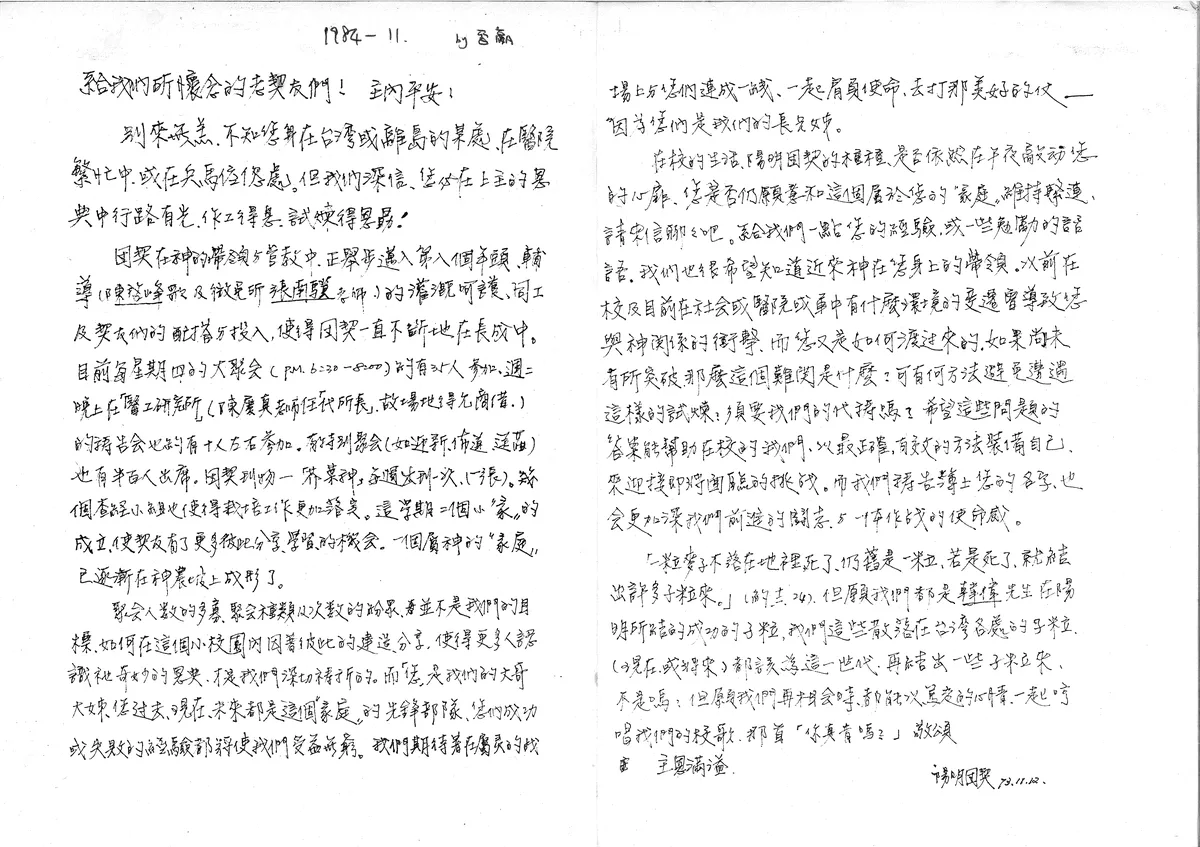 1984-11. by
給我們所懷念的老契友們! 主內平安!
別來無恙,不知您身在台湾或離島的某處,在醫院
繁忙中,或在兵馬倥傯處。但我們深信,您必在上主的恩
典中行路有光,作工得息,試煉得恩賜!
团契在神的帶領与管教中,正舉步邁入第八個年頭,輔
導(陳 峰歌及微免所張南驥老師)的灌溉呵護,同工
及契友們的配搭与投入,使得团契一直不斷地在長成中。
目前每星期四的大聚會(p.m. 6:30-8:00)約有 人參加,週二
晚上在「醫工研究所」(陳慶真老師任代所長,故場地得允商借。)
的禱告会也約有十人左右參加。有特別聚會(如迎新,佈道,送舊)
也有半百人出席。团契刊物一「芥菜种」每週出刊一次,(一張)。幾
個查經小組也使得栽培工作更加落实。這学期二個小“家”的
成立,使契友有了更多彼此分享,學習的機会。一個屬神的“家庭”
已逐漸在神農坡上成形了。
聚会人数的多寡,聚会種類及次数的紛杂,並不是我們的目
標,如何在這個小校園內因著彼此的建造,分享,使得更多人認
識祂奇妙的恩典,才是我們深切禱祈的。而「您」是我們的大哥
大姊,您过去,現在,未來都是這個“家庭”的先鋒部隊,您們成功
或失敗的經驗都將使我們受益無窮。我們期待著在屬灵的战
場上与您們連成一線,一起肩負使命,去打那美好的仗—
因为您們是我們的長兄姊。
在校的生活,陽明团契的種種,是否依然在午夜敲动您
的心扉,您是否仍願意和這個屬於您的“家庭”維持繫連,
請來信聊聊吧。給我們一點您的經驗,或一些勉勵的話
語。我們也很希望知道近來神在您身上的帶領。以前在
校及目前在社会或醫院或軍中有什麼環境的变遷曾導致您
與神關係的衝擊,而您又是如何渡过來的,如果尚未
有所突破那麼這個難関是什麼?可有何方法避免遭遇
這樣的試煉?須要我們的代禱嗎?希望這些問題的
答案能幫助在校的我們,以最正確,有效的方法裝備自己,
來迎接即將面臨的挑战。而我們禱告簿上您的名字,也
会更加深我們前進的鬥志,与一体作战的使命感。
「一粒麥子不落在地裡死了,仍舊是一粒,若是死了,就結
出許多子粒來。」(約十二24),但願我們都是韓偉先生在陽
明所結的成功的子粒,我們這些散落在台灣各處的子粒,
(現在,或將來)都該為這一世代,再結出一些子粒來,
不是嗎?但願我們再相会時,都能以篤定的心情,一起哼
唱我們的校歌,那首「你真肯嗎?」敬頌
主恩滿溢
陽明团契 73.11.12.